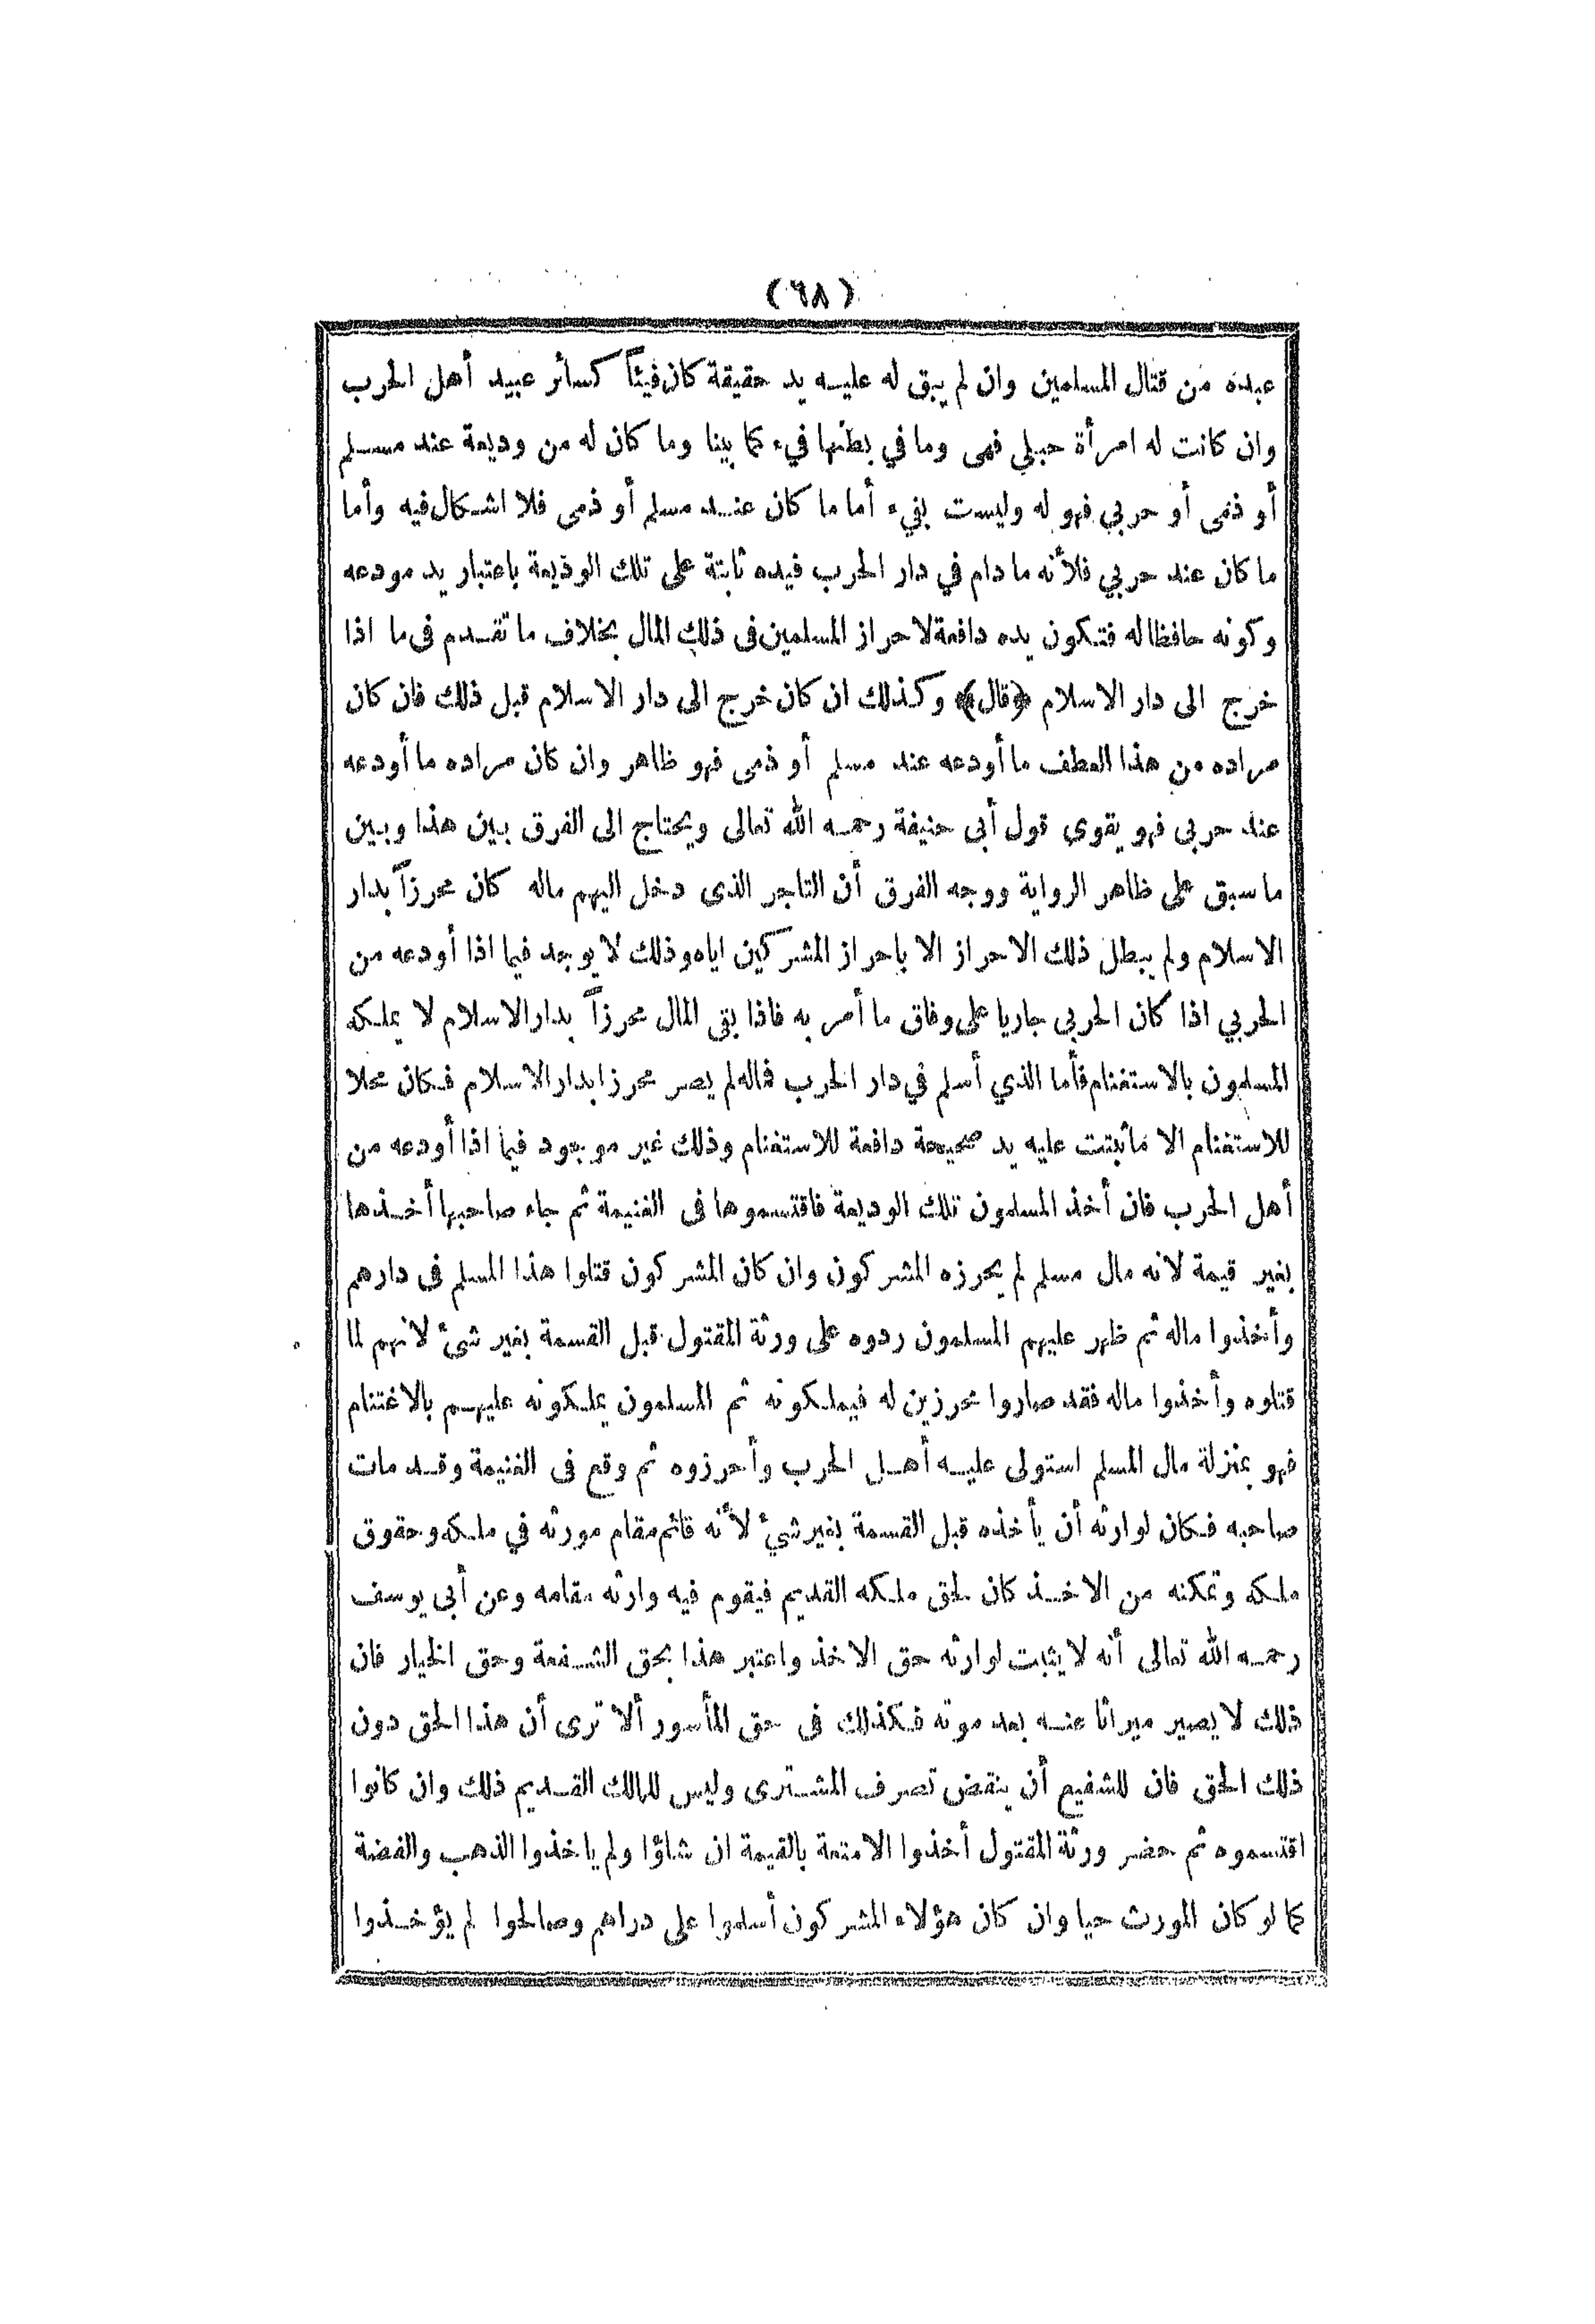 (٦٨)
عبده من قتال المسلمين وان لم يبق له عليه يد حقيقة كان فيئاً كسائر عبيد أهل الحرب
وان كانت له امرأة حبلي فهي وما في بطنها فيء كما بينا وما كان له من وديعة عند مسلم
أو ذمى أو حربي فهو له وليست بفيء أما ما كان عند مسلم أو ذمى فلا اشكال فيه وأما
ما كان عند حربي فلأنه ما دام في دار الحرب فيده ثابتة على تلك الوديعة باعتبار يد مودعه
وكونه حافظا له فتكون يده دافعة لاحراز المسلمين فى ذلك المال بخلاف ما تقدم فى ما اذا
خرج الى دار الاسلام ﴿قال﴾ وكذلك ان كان خرج الى دار الاسلام قبل ذلك فان كان
مراده من هذا العطف ما أودعه عند مسلم أو ذمى فهو ظاهر وان كان مراده ما أودعه
عند حربى فهو يقوي قول أبى حنيفة رحمه الله تعالى ويحتاج الى الفرق بين هذا وبين
ما سبق على ظاهر الرواية ووجه الفرق أن التاجر الذى دخل اليهم ماله كان محرزاً بدار
الاسلام ولم يبطل ذلك الاحراز الا باحراز المشركين اياه وذلك لا يوجد فيما اذا أودعه من
الحربي اذا كان الحربى جاريا على وفاق ما أمر به فاذا بقى المال محرزاً بدار الاسلام لا يملكه
المسلمون بالاستغنام فأما الذي أسلم في دار الحرب فماله لم يصر محرزا بدار الاسلام فكان محلا
للاستغنام الا ما ثبتت عليه يد صحيحة دافعة للاستغنام وذلك غير موجود فيما اذا أودعه من
أهل الحرب فان أخذ المسلمون تلك الوديعة فاقتسموها فى الغنيمة ثم جاء صاحبها أخذها
بغير قيمة لانه مال مسلم لم يحرزه المشركون وان كان المشركون قتلوا هذا المسلم فى دارهم
وأخذوا ماله ثم ظهر عليهم المسلمون ردوه على ورثة المقتول قبل القسمة بغير شئ لانهم لما
قتلوه وأخذوا ماله فقد صاروا محرزين له فيملكونه ثم المسلمون يملكونه عليهم بالاغتنام
فهو بمنزلة مال المسلم استولى عليه أهل الحرب وأحرزوه ثم وقع فى الغنيمة وقد مات
صاحبه فكان لوارثه أن يأخذه قبل القسمة بغير شيء لأنه قائم مقام مورثه في ملكه وحقوق
ملكه وتمكنه من الاخذ كان لحق ملكه القديم فيقوم فيه وارثه مقامه وعن أبى يوسف
رحمه الله تعالى أنه لا يثبت لوارثه حق الاخذ واعتبر هذا بحق الشفعة وحق الخيار فان
ذلك لا يصير ميراثا عنه بعد موته فكذلك فى حق المأسور ألا ترى أن هذا الحق دون
ذلك الحق فان للشفيع أن ينقض تصرف المشترى وليس للمالك القديم ذلك وان كانوا
اقتسموه ثم حضر ورثة المقتول أخذوا الامتعة بالقيمة ان شاؤا ولم ياخذوا الذهب والفضة
كما لو كان المورث حيا وان كان هؤلاء المشركون أسلموا على دراهم وصالحوا لم يؤخذوا